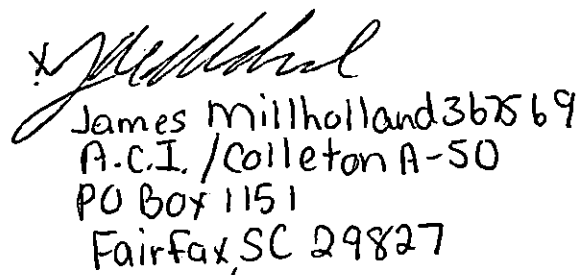 James Millholland
A.C.I. / Colleton A-50
PO Box 1151
Fairfax, SC 29827